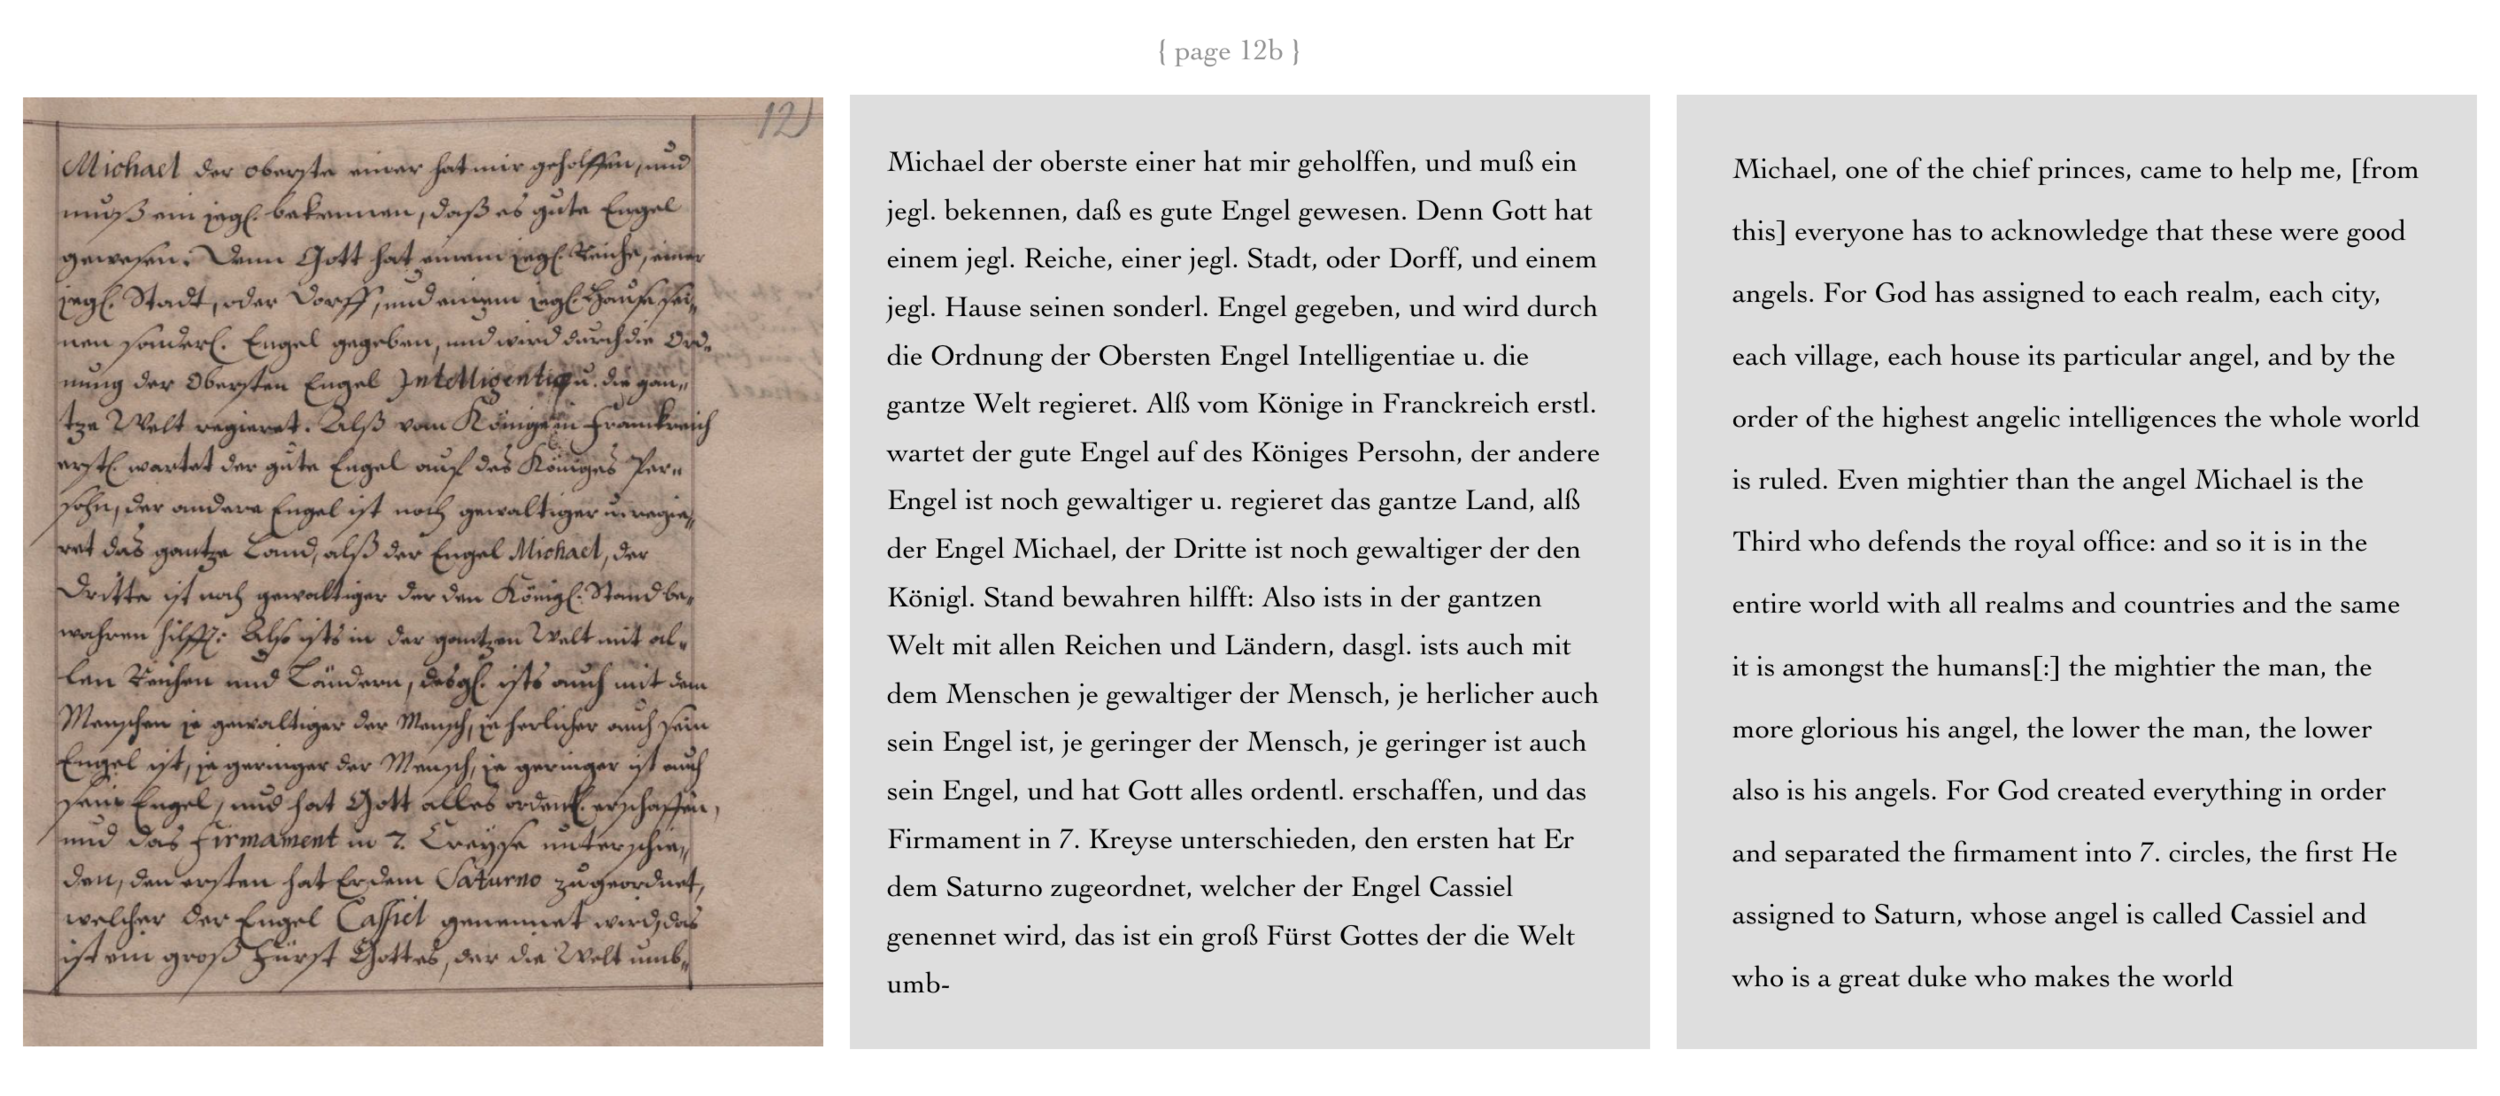 { page 12b }
12
Michael der oberste einer hat mir geholffen, und
muß ein jegl. bekennen, daß es gute Engel
gewesen. Denn Gott hat einem jegl. Reiche, einer
jegl. Stadt, oder Dorff, und einem jegl. Hause sei„
nen sonderl. Engel gegeben, und wird durch die Ord„
nung der Obersten Engel Intelligentiæ u. die gan„
tze Welt regieret. Alß vom Könige in Franckreich
erstl. wartet der gute Engel auf des Königes Per„
sohn, der andere Engel ist noch gewaltiger u. regie„
ret das gantze Land, alß der Engel Michael, der
Dritte ist noch gewaltiger der den Königl. Stand be„
wahren hilfft: Also ists in der gantzen Welt mit al„
len Reichen und Ländern, desgl. ists auch mit dem
Menschen je gewaltiger der Mensch, je herlicher auch sein
Engel ist, je geringer der Mensch, je geringer ist auch
sein Engel, und hat Gott alles ordentl. erschaffen,
und das Firmament in 7. Creyse unterschie„
den, den ersten hat Er dem Saturno zugeordnet,
welcher der Engel Cassiel genennet wird, das
ist ein groß Fürst Gottes, der die Welt umb„
Michael der oberste einer hat mir geholffen, und muß ein
jegl. bekennen, daß es gute Engel gewesen. Denn Gott hat
einem jegl. Reiche, einer jegl. Stadt, oder Dorff, und einem
jegl. Hause seinen sonderl. Engel gegeben, und wird durch
die Ordnung der Obersten Engel Intelligentiae u. die
gantze Welt regieret. Alß vom Könige in Franckreich erstl.
wartet der gute Engel auf des Königes Persohn, der andere
Engel ist noch gewaltiger u. regieret das gantze Land, alß
der Engel Michael, der Dritte ist noch gewaltiger der den
Königl. Stand bewahren hilfft: Also ists in der gantzen
Welt mit allen Reichen und Ländern, dasgl. ists auch mit
dem Menschen je gewaltiger der Mensch, je herlicher auch
sein Engel ist, je geringer der Mensch, je geringer ist auch
sein Engel, und hat Gott alles ordentl. erschaffen, und das
Firmament in 7. Kreyse unterschieden, den ersten hat Er
dem Saturno zugeordnet, welcher der Engel Cassiel
genennet wird, das ist ein groß Fürst Gottes der die Welt
umb-
Michael, one of the chief princes, came to help me, [from
this] everyone has to acknowledge that these were good
angels. For God has assigned to each realm, each city,
each village, each house its particular angel, and by the
order of the highest angelic intelligences the whole world
is ruled. Even mightier than the angel Michael is the
Third who defends the royal office: and so it is in the
entire world with all realms and countries and the same
it is amongst the humans[:] the mightier the man, the
more glorious his angel, the lower the man, the lower
also is his angels. For God created everything in order
and separated the firmament into 7. circles, the first He
assigned to Saturn, whose angel is called Cassiel and
who is a great duke who makes the world